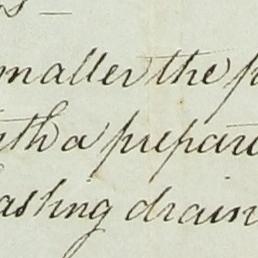 smaller the p
with a prepare
washing drain